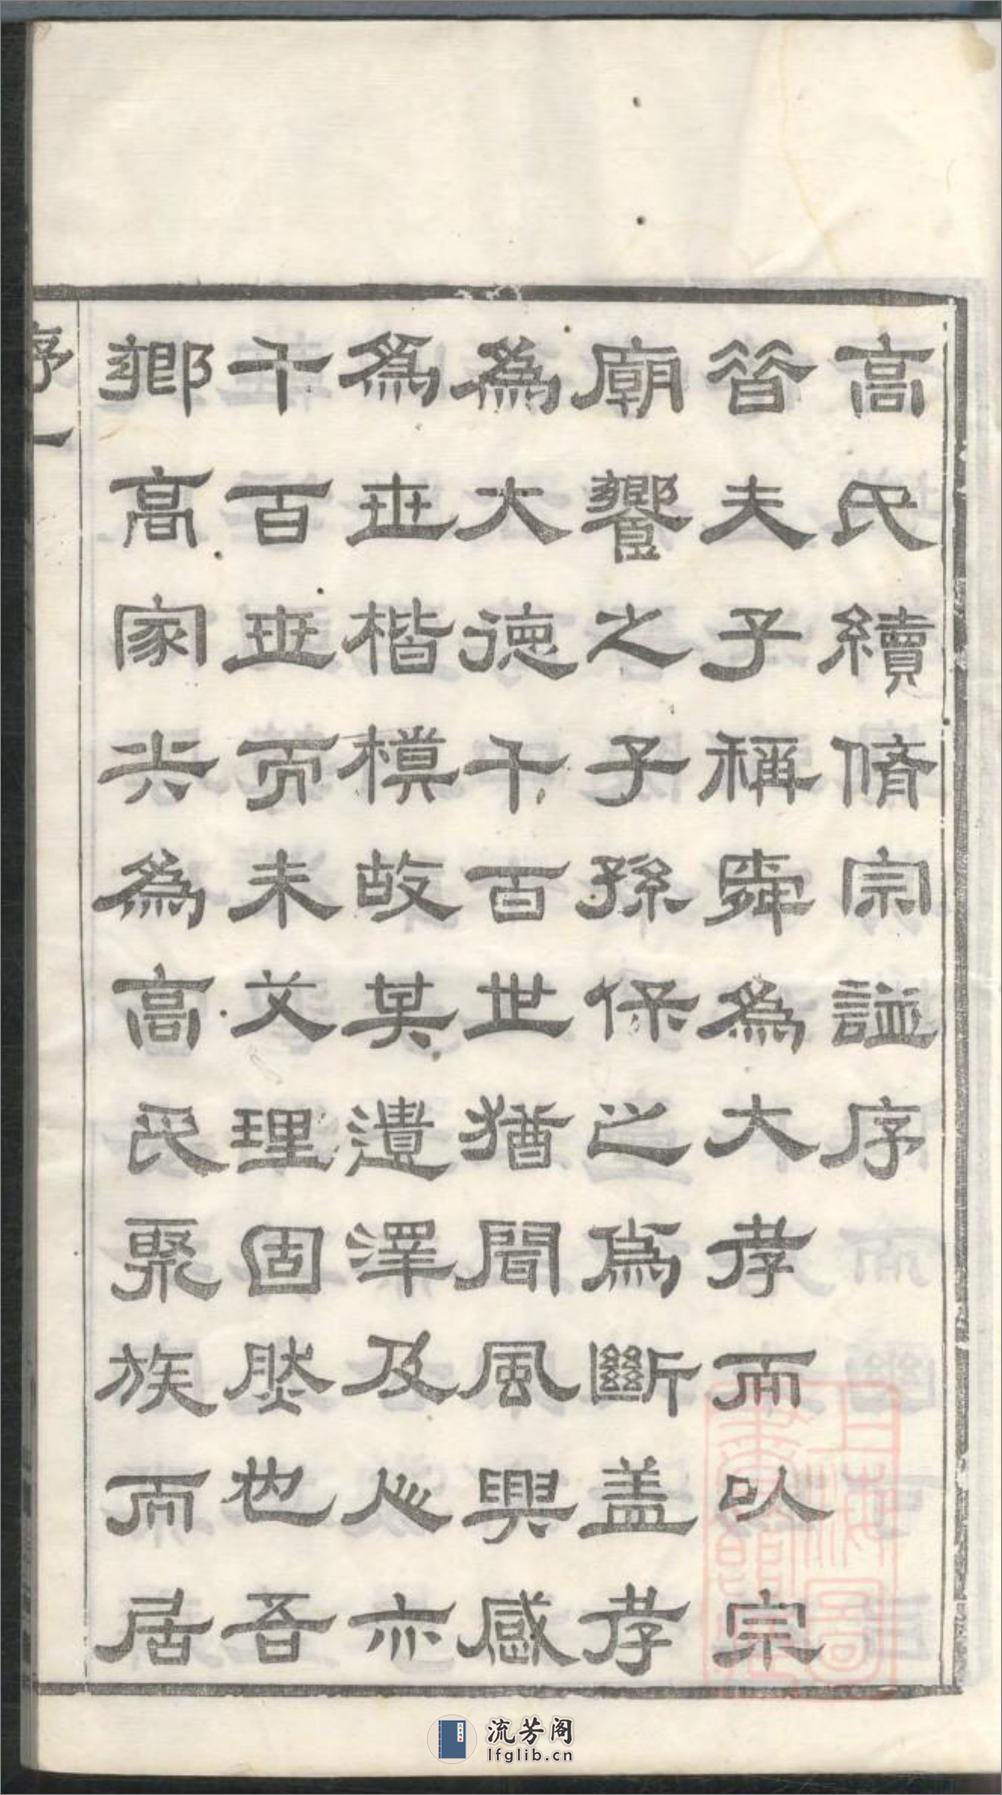 高氏續脩宗譜序
昔夫子稱舜為大孝而以宗
廟饗之子孫保之為斷盖孝
為大德千百世猶聞風興感
為世楷模故其遺澤及人亦
千百世而未艾理固然也吾
鄉高家為高氏聚族而居
序一
上海圖書館藏
流芳阁
lfglib.cn